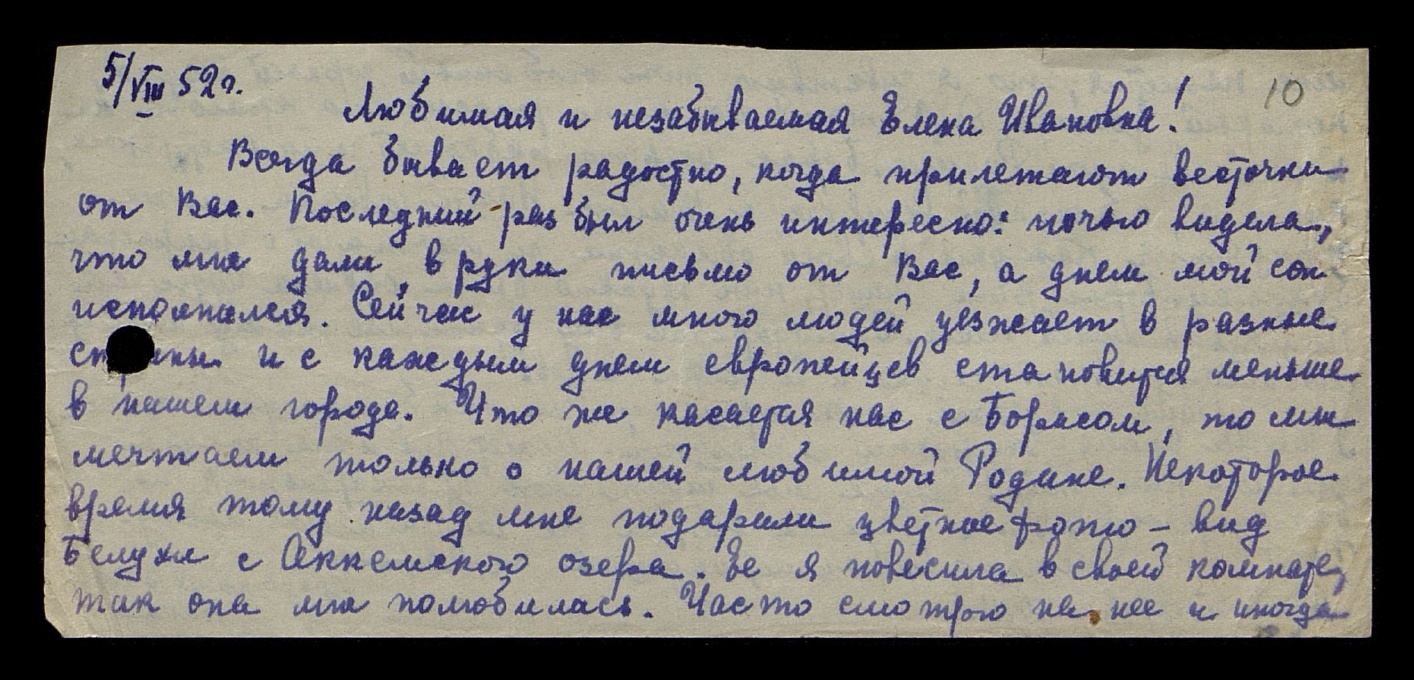 5/VIII 52 г.
10
Любимая и незабываемая Елена Ивановна!
Всегда бывает радостно, когда прилетают весточки
от Вас. Последний раз был очень интересно: ночью видела,
что мне дали в руки письмо от Вас, а днем мой сон
исполнился. Сейчас у нас много людей уезжает в разные
страны и с каждым днем европейцев становится меньше
в нашем городе. Что же касается нас с Борисом, то мы
мечтаем только о нашей любимой Родине. Некоторое
время тому назад мне подарили цветное фото – вид
Белухи с Аккемского озера. Ее я повесила в своей комнате,
так она мне полюбилась. Часто смотрю на нее и иногда